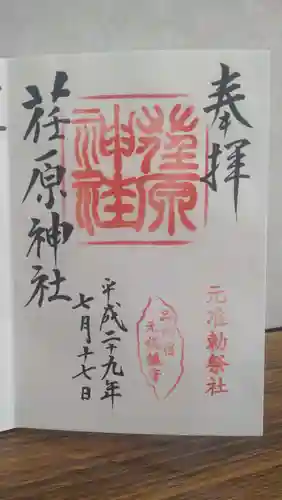 奉拝
元准勅祭社
荏原神社
平成二十九年
七月十七日
荏原神社